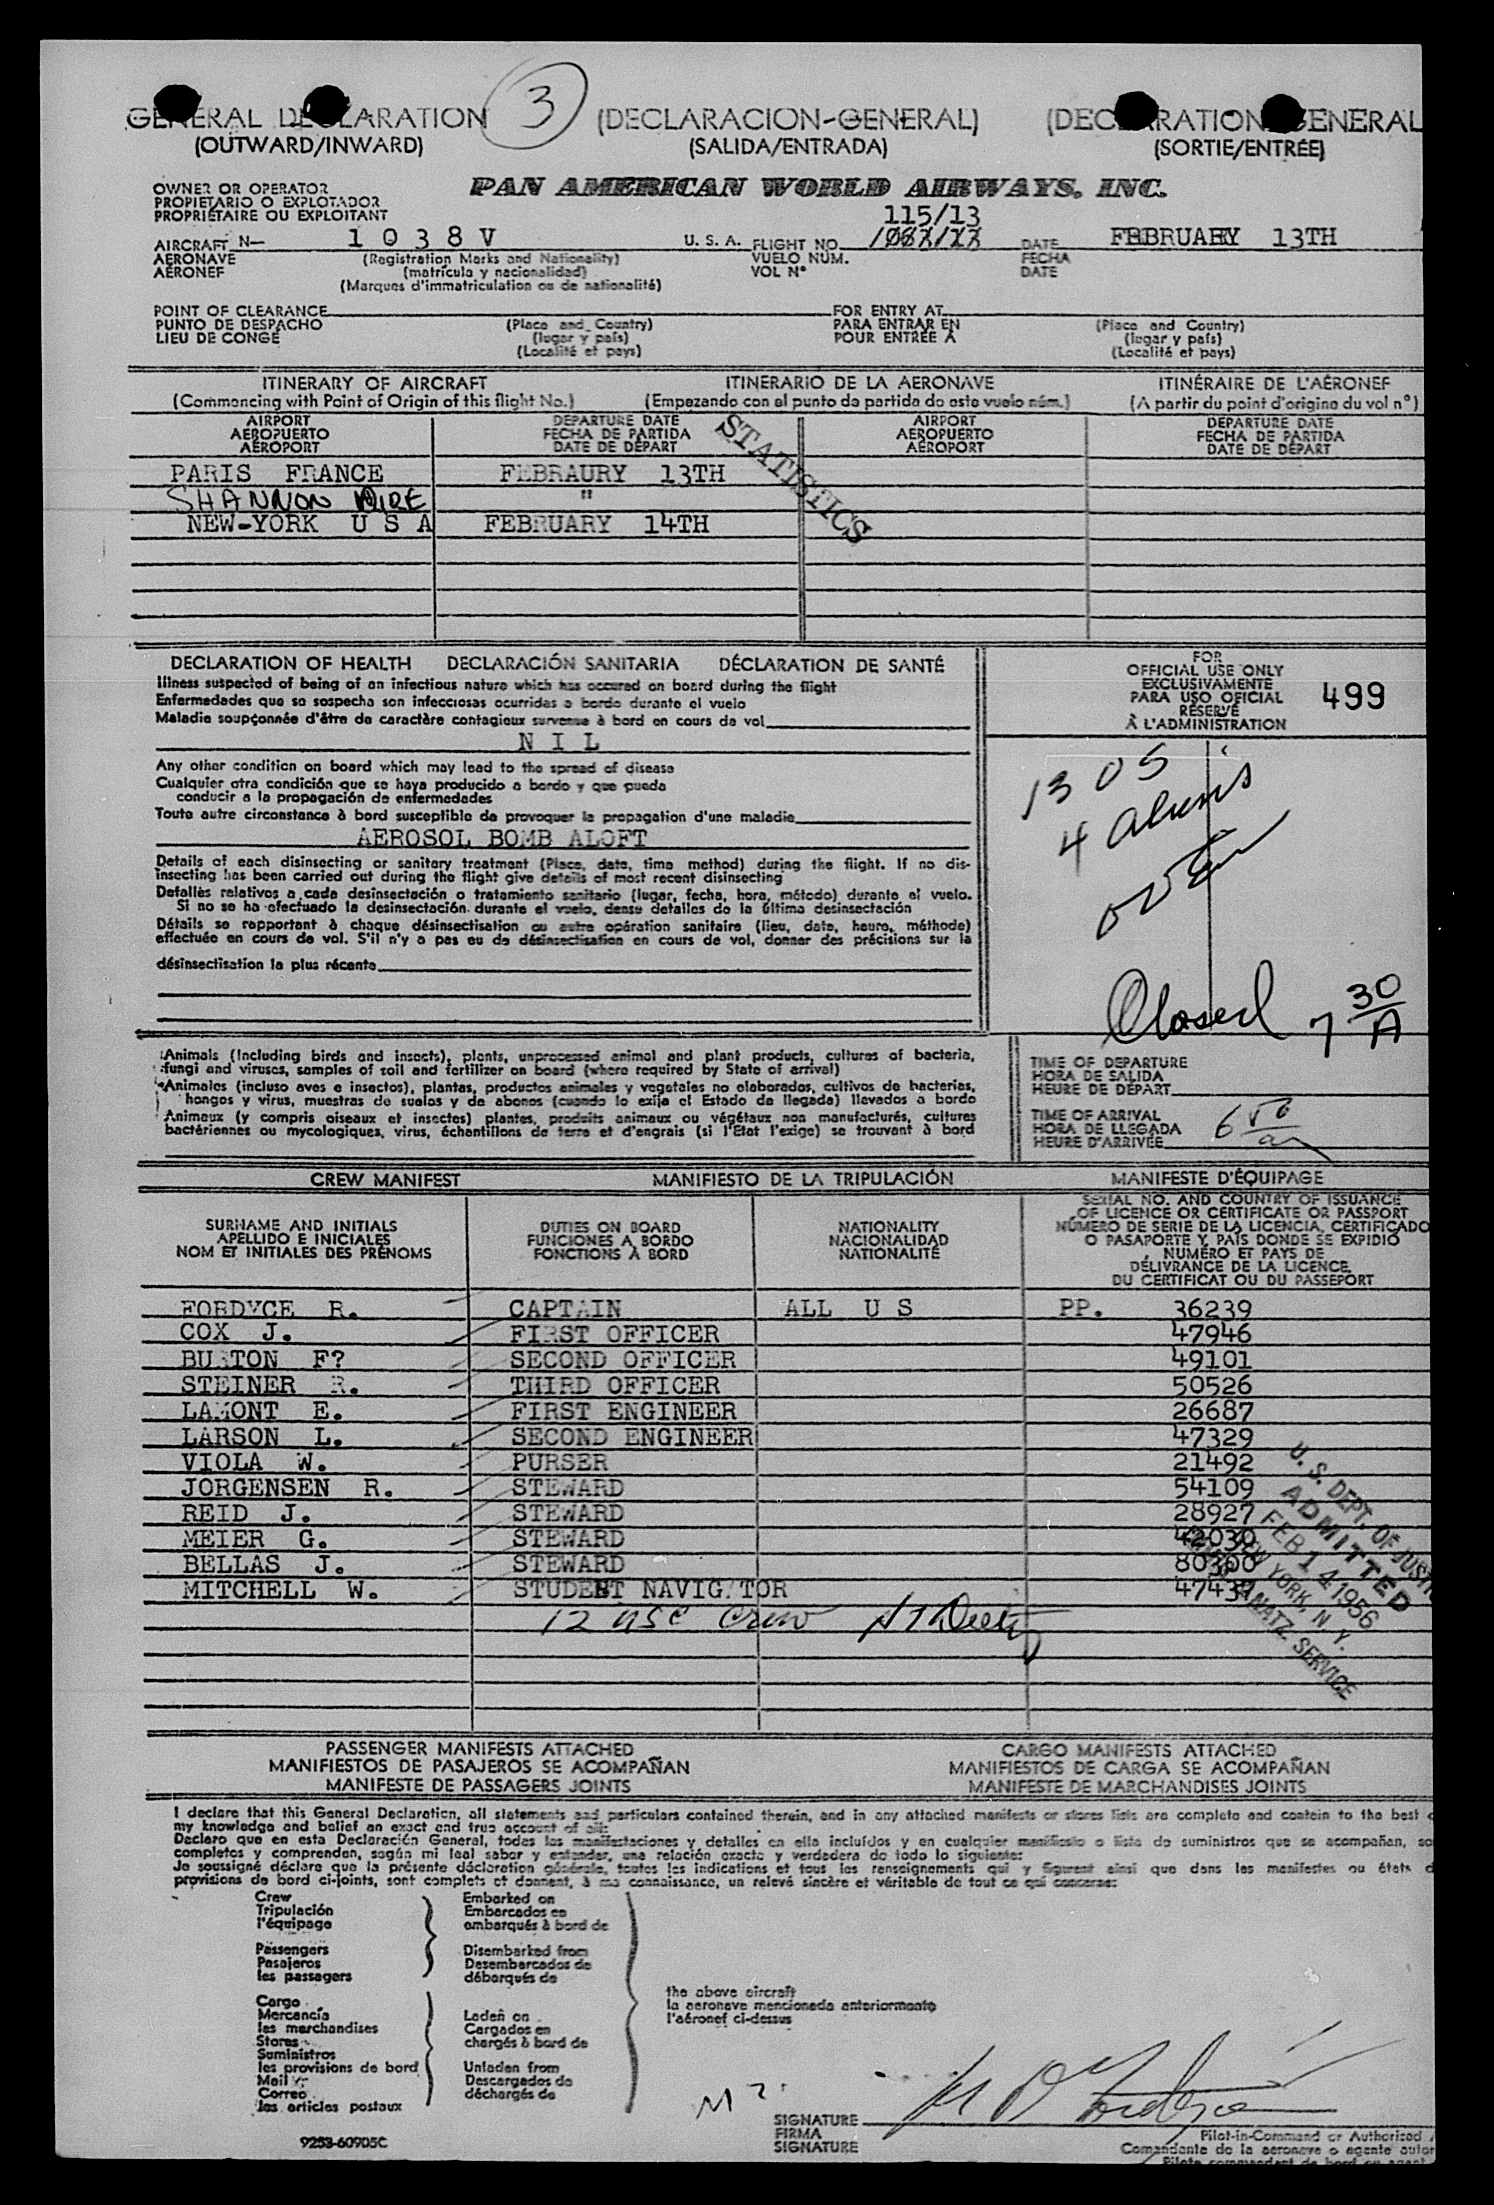 GENERAL DECLARATION (DECLARACION-GENERAL) (DECLARATION GENERAL
3
(OUTWARD/INWARD) (SALIDA/ENTRADA) (SORTIE/ENTRÉE)
OWNER OR OPERATOR
PROPIETARIO O EXPLOTADOR
PROPRIÉTAIRE OU EXPLOITANT
PAN AMERICAN WORLD AIRWAYS, INC.
115/13
AIRCRAFT N- 1 0 3 8 V U. S. A. FLIGHT NO. DATE FEBRUARY 13TH
AERONAVE (Registration Marks and Nationality) VUELO NÚM. FECHA
AÉRONEF (matrícula y nacionalidad) VOL Nº DATE
(Marques d'immatriculation ou de nationalité)
POINT OF CLEARANCE FOR ENTRY AT
PUNTO DE DESPACHO (Place and Country) PARA ENTRAR EN (Place and Country)
LIEU DE CONGÉ (lugar y país) POUR ENTRÉE À (lugar y país)
(Localité et pays) (Localité et pays)
ITINERARY OF AIRCRAFT ITINERARIO DE LA AERONAVE ITINÉRAIRE DE L'AÉRONEF
(Commencing with Point of Origin of this flight No.) (Empezando con el punto de partida de este vuelo núm.) (A partir du point d'origine du vol nº)
AIRPORT DEPARTURE DATE AIRPORT DEPARTURE DATE
AEROPUERTO FECHA DE PARTIDA AEROPUERTO FECHA DE PARTIDA
AÉROPORT DATE DE DÉPART AÉROPORT DATE DE DÉPART
STATISTICS
PARIS FRANCE FEBRAURY 13TH
SHANNON EIRE "
NEW-YORK U S A FEBRUARY 14TH
DECLARATION OF HEALTH DECLARACIÓN SANITARIA DÉCLARATION DE SANTÉ
Illness suspected of being of an infectious nature which has occured on board during the flight
Enfermedades que se sospecha son infecciosas ocurridas a bordo durante el vuelo
Maladie soupçonnée d'être de caractère contagieux survenue à bord en cours de vol
N I L
Any other condition on board which may lead to the spread of disease
Cualquier otra condición que se haya producido a bordo y que pueda
conducir a la propagación de enfermedades
Toute autre circonstance à bord susceptible de provoquer la propagation d'une maladie
AEROSOL BOMB ALOFT
Details of each disinsecting or sanitary treatment (Place, date, time method) during the flight. If no dis-
insecting has been carried out during the flight give details of most recent disinsecting
Detalles relativos a cada desinsectación o tratamiento sanitario (lugar, fecha, hora, método) durante el vuelo.
Si no se ha efectuado la desinsectación durante el vuelo, dense detalles de la última desinsectación
Détails se rapportant à chaque désinsectisation ou autre opération sanitaire (lieu, date, heure, méthode)
effectuée en cours de vol. S'il n'y a pas eu de désinsectisation en cours de vol, donner des précisions sur la
désinsectisation la plus récente
FOR
OFFICIAL USE ONLY
EXCLUSIVAMENTE
PARA USO OFICIAL
RÉSERVÉ
À L'ADMINISTRATION
499
1305
4 aliens
Closed 7 30/A
Animals (Including birds and insects), plants, unprocessed animal and plant products, cultures of bacteria,
fungi and viruses, samples of soil and fertilizer on board (where required by State of arrival)
Animales (incluso aves e insectos), plantas, productos animales y vegetales no elaborados, cultivos de bacterias,
hongos y virus, muestras de suelos y de abonos (cuando lo exija el Estado de llegada) llevados a bordo
Animaux (y compris oiseaux et insectes) plantes, produits animaux ou végétaux non manufacturés, cultures
bactériennes ou mycologiques, virus, échantillons de terre et d'engrais (si l'État l'exige) se trouvant à bord
TIME OF DEPARTURE
HORA DE SALIDA
HEURE DE DÉPART
TIME OF ARRIVAL
HORA DE LLEGADA
HEURE D'ARRIVÉE
CREW MANIFEST MANIFIESTO DE LA TRIPULACIÓN MANIFESTE D'ÉQUIPAGE
SURNAME AND INITIALS
APELLIDO E INICIALES
NOM ET INITIALES DES PRÉNOMS
DUTIES ON BOARD
FUNCIONES A BORDO
FONCTIONS À BORD
NATIONALITY
NACIONALIDAD
NATIONALITÉ
SERIAL NO. AND COUNTRY OF ISSUANCE
OF LICENCE OR CERTIFICATE OR PASSPORT
NÚMERO DE SERIE DE LA LICENCIA, CERTIFICADO
O PASAPORTE Y PAÍS DONDE SE EXPIDIÓ
NUMÉRO ET PAYS DE
DÉLIVRANCE DE LA LICENCE,
DU CERTIFICAT OU DU PASSEPORT
FORDYCE R. CAPTAIN ALL U S PP. 36239
COX J. FIRST OFFICER 47946
BURTON F? SECOND OFFICER 49101
STEINER R. THIRD OFFICER 50526
LAMONT E. FIRST ENGINEER 26687
LARSON L. SECOND ENGINEER 47329
VIOLA W. PURSER 21492
JORGENSEN R. STEWARD 54109
REID J. STEWARD 28927
MEIER G. STEWARD 42030
BELLAS J. STEWARD 80300
MITCHELL W. STUDENT NAVIGATOR 4743
12 USC Crew
U. S. DEPT. OF JUSTI
ADMITTED
FEB 14 1956
NEW YORK, N. Y.
NATZ. SERVICE
PASSENGER MANIFESTS ATTACHED CARGO MANIFESTS ATTACHED
MANIFIESTOS DE PASAJEROS SE ACOMPAÑAN MANIFIESTOS DE CARGA SE ACOMPAÑAN
MANIFESTE DE PASSAGERS JOINTS MANIFESTE DE MARCHANDISES JOINTS
I declare that this General Declaration, all statements and particulars contained therein, and in any attached manifests or stores lists are complete and contain to the best
my knowledge and belief an exact and true account of all:
Declaro que en esta Declaración General, todas las manifestaciones y detalles en ella incluídos y en cualquier manifiesto o lista de suministros que se acompañan, so
completos y comprenden, según mi leal saber y entender, una relación exacta y verdadera de todo lo siguiente:
Je soussigné déclare que la présente déclaration générale, toutes les indications et tous les renseignements qui y figurent ainsi que dans les manifestes ou états d
provisions de bord ci-joints, sont complets et donnent, à ma connaissance, un relevé sincère et véritable de tout ce qui concerne:
Crew Embarked on
Tripulación Embarcados en
l'équipage embarqués à bord de
Passengers Disembarked from
Pasajeros Desembarcados de
les passagers débarqués de
the above aircraft
la aeronave mencionada anteriormente
l'aéronef ci-dessus
Cargo
Mercancía Laden on
les marchandises Cargados en
Stores chargés à bord de
Suministros
les provisions de bord Unladen from
Mail Descargados de
Correo déchargés de
les articles postaux
SIGNATURE
FIRMA
SIGNATURE
Pilot-in-Command or Authorized
Comandante de la aeronave o agente autor
9253-60905C